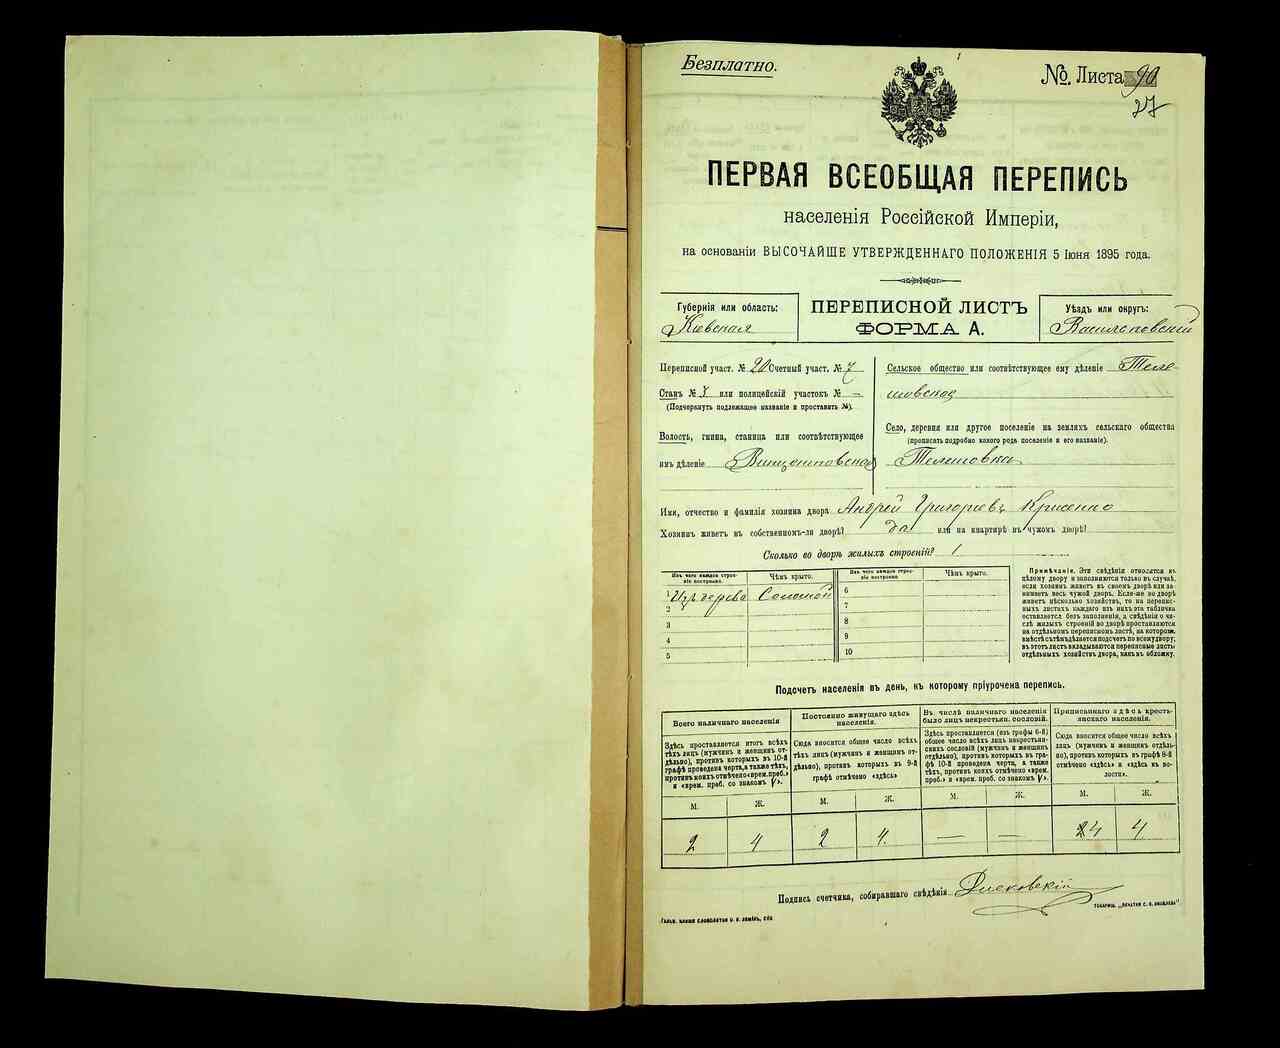 Безплатно.
№ Листа 90
27
ПЕРВАЯ ВСЕОБЩАЯ ПЕРЕПИСЬ
населенія Россійской Имперіи,
на основаніи ВЫСОЧАЙШЕ УТВЕРЖДЕННАГО ПОЛОЖЕНІЯ 5 Іюня 1895 года.
Губернія или область:
Кіевская
ПЕРЕПИСНОЙ ЛИСТЪ
ФОРМА А.
Уѣздъ или округъ:
Васильковскій
Переписной участ. № 20 Счетный участ. № 7
Станъ № или полицейскій участокъ № —
(Подчеркнуть подлежащее названіе и проставить №).
Волость, гмина, станица или соотвѣтствующее
имъ дѣленіе
Сельское общество или соотвѣтствующее ему дѣленіе Теле-
шовское
Село, деревня или другое поселеніе на земляхъ сельскаго общества
(прописать подробно какого рода поселеніе и его названіе).
Телешовка
Имя, отчество и фамилія хозяина двора Андрей Григорьевъ
Хозяинъ живетъ въ собственномъ-ли дворѣ? да или на квартирѣ въ чужомъ дворѣ?
Сколько во дворѣ жилыхъ строеній? 1
Изъ чего каждое строе-
ніе построено.
Чѣмъ крыто.
1 Изъ дерева Соломой
2
3
4
5
Изъ чего каждое строе-
ніе построено.
Чѣмъ крыто.
6
7
8
9
10
Примѣчаніе. Эти свѣдѣнія относятся къ
цѣлому двору и заполняются только въ случаѣ,
если хозяинъ живетъ въ своемъ дворѣ или за-
нимаетъ весь чужой дворъ. Если-же во дворѣ
живетъ нѣсколько хозяйствъ, то на перепис-
ныхъ листахъ каждаго изъ нихъ эта табличка
оставляется безъ заполненія, а свѣдѣнія о чи-
слѣ жилыхъ строеній во дворѣ проставляются
на отдѣльномъ переписномъ листѣ, на которомъ
вмѣстѣ съ тѣмъ дѣлается подсчетъ по всему двору;
въ этотъ листъ вкладываются переписные листы
отдѣльныхъ хозяйствъ двора, какъ въ обложку.
Подсчетъ населенія въ день, къ которому пріурочена перепись.
Всего наличнаго населенія
Здѣсь проставляется итогъ всѣхъ
тѣхъ лицъ (мужчинъ и женщинъ от-
дѣльно), противъ которыхъ въ 10-й
графѣ проведена черта, а также тѣхъ,
противъ коихъ отмѣчено «врем. преб.»
и «врем. преб. со знакомъ V».
Постоянно живущаго здѣсь
населенія.
Сюда вносится общее число всѣхъ
тѣхъ лицъ (мужчинъ и женщинъ от-
дѣльно), противъ которыхъ въ 9-й
графѣ отмѣчено «здѣсь»
Въ числѣ наличнаго населенія
было лицъ некрестьян. сословій.
Здѣсь проставляется (изъ графы 6-й)
общее число всѣхъ лицъ некрестьян-
скихъ сословій (мужчинъ и женщинъ
отдѣльно), противъ которыхъ въ гра-
фѣ 10-й проведена черта, а также
тѣхъ, противъ коихъ отмѣчено «врем.
преб.» и «врем. преб. со знакомъ V».
Приписаннаго здѣсь кресть-
янскаго населенія.
Сюда вносится общее число всѣхъ
лицъ (мужчинъ и женщинъ отдѣль-
но), противъ которыхъ въ графѣ 8-й
отмѣчено «здѣсь» и «здѣсь въ во-
лости».
М. Ж. М. Ж. М. Ж. М. Ж.
2 4 2 4. — — 4 4
Подпись счетчика, собиравшаго свѣдѣнія